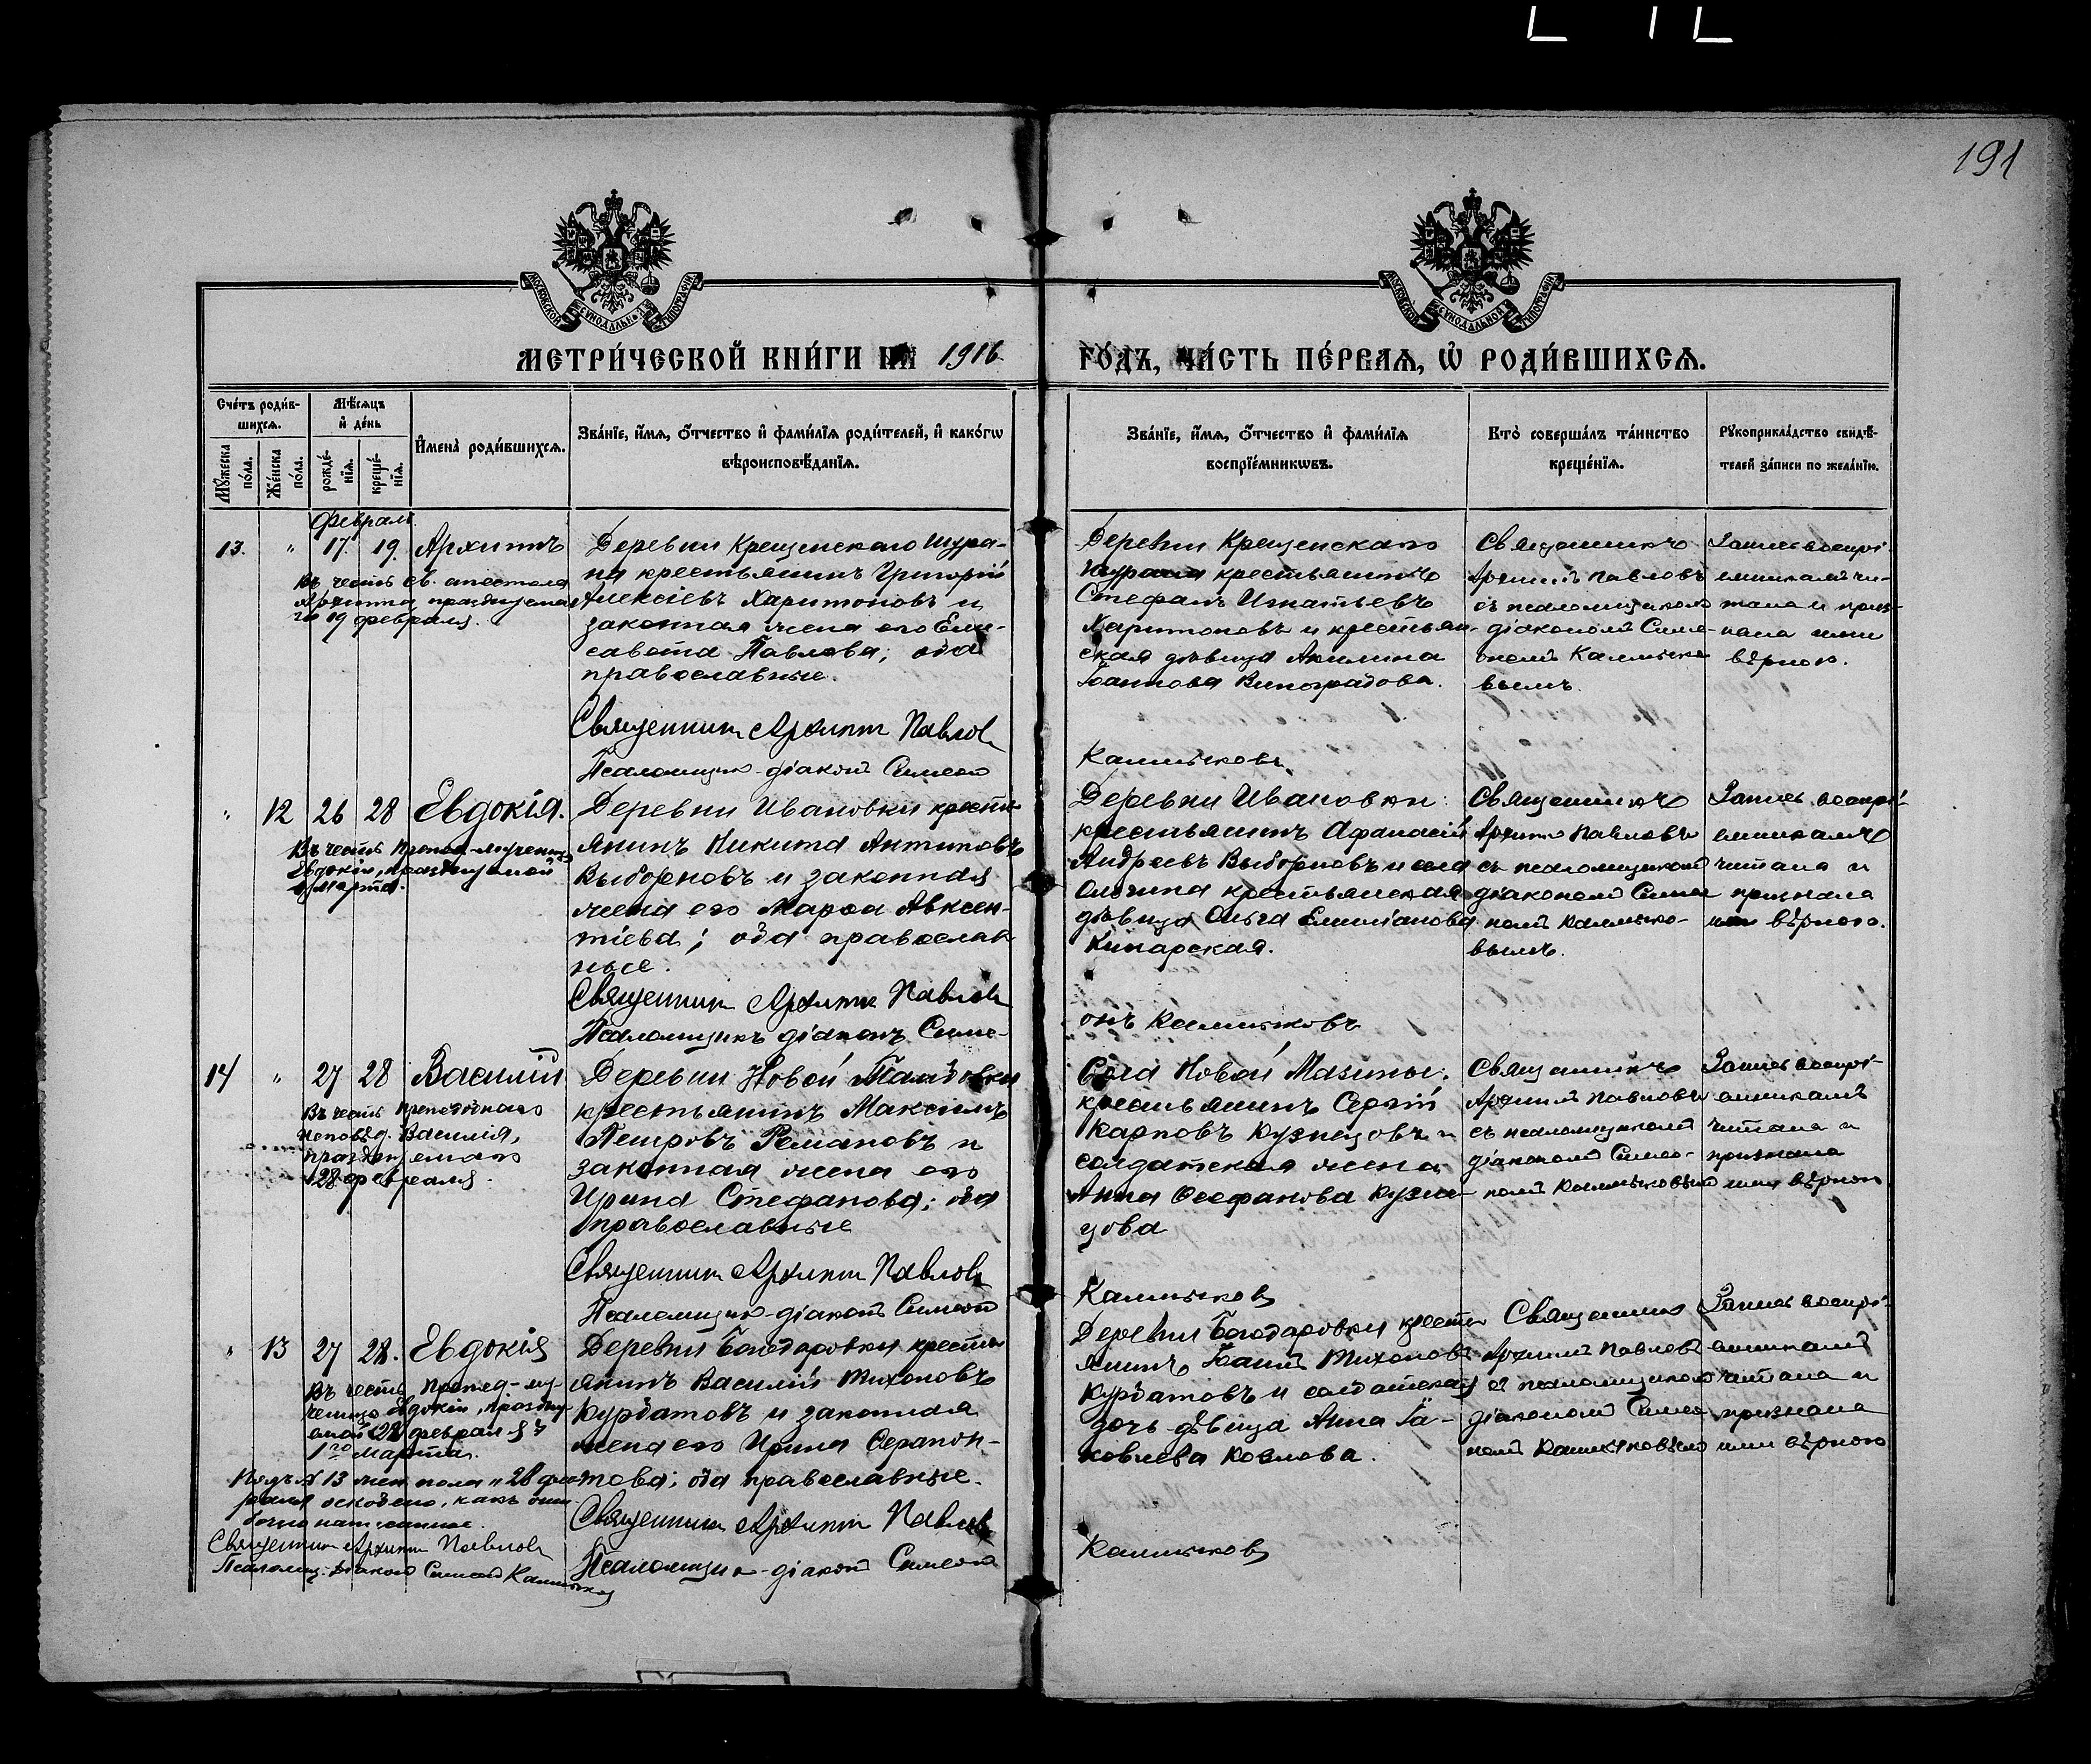 191
МОСКОВСКОЙ СѴНОДАЛЬНОЙ ТИПОГРАФІИ
МОСКОВСКОЙ СѴНОДАЛЬНОЙ ТИПОГРАФІИ
МЕТРИ́ЧЕСКОЙ КНИ́ГИ НА 1916 ГО́ДЪ, ЧА́СТЬ ПЕ́РВАѦ, Ѡ РОДИ́ВШИХСѦ.
Сче́тъ роди́в-
шихсѧ.
Мꙋ́жеска по́ла.
Же́нска по́ла.
Мѣ́сѧцъ и де́нь
рожде́-
нїѧ.
креще́-
нїѧ.
И҆мена̀ роди́вшихсѧ.
Зва́нїе, и҆́мѧ, ѻ҆́тчество и҆ фами́лїѧ роди́телей, и҆ како́гѡ
вѣроисповѣ́данїѧ.
Зва́нїе, и҆́мѧ, ѻ҆́тчество и҆ фами́лїѧ
воспрїе́мникѡвъ.
Кто̀ соверша́лъ та́инство
креще́нїѧ.
Рꙋкоприкла́дство свидѣ́-
телей за́писи по жела́нїю.
Февраль.
13. " 17. 19. Архиппъ
Въ честь св. апостола
Архиппа, празднуема
го 19 февраля.
Деревни Крещенскаго Шура-
на крестьянинъ Григорій
Алексіевъ Харитоновъ и
законная жена его Ели-
савета Павлова; оба
православные.
Священникъ Архиппъ Павловъ
Псаломщикъ-діаконъ Симеонъ
Деревни Крещенскаго
Шурана крестьянинъ
Стефанъ Игнатьевъ
Харитоновъ и крестьян-
ская дѣвица Акилина
Іоаннова Виноградова.
Калмыковъ
Священникъ
Архиппъ Павловъ
съ псаломщикомъ
діакономъ Симе-
ономъ Калмыко
вымъ.
Запись воспрі-
емникамъ чи-
тана и приз-
нана ими
вѣрною.
" 12 26 28 Евдокія.
Въ честь препод.-мученицы
Евдокіи, празднуемой
1 Марта.
Деревни Ивановки кресть
янинъ Никита Антиповъ
Выборновъ и законная
жена его Марѳа Авксен-
тіева; оба православ
ные.
Священникъ Архиппъ Павловъ
Псаломщикъ діаконъ Симе-
Деревни Ивановки
крестьянинъ Афанасій
Андреевъ Выборновъ и села
крестьянская
дѣвица Ольга Емиліанова
Кипарская.
онъ Калмыковъ
Священникъ
Архиппъ Павловъ
съ псаломщикомъ
діакономъ Симео
номъ Калмыко-
вымъ.
Запись воспрі-
емникамъ
читана и
признана
ими вѣрною.
14 " 27 28 Василій
Въ честь преподобнаго
исповѣд. Василія,
празднуемаго
28 февраля.
Деревни Новой
крестьянинъ Максимъ
Петровъ Романовъ и
законная жена его
Ирина Стефанова; оба
православные
Священникъ Архиппъ Павловъ
Псаломщикъ-діаконъ Симеонъ
Села Новой Мазины.
крестьянинъ Сергій
Карповъ Кузнецовъ и
солдатская жена
Анна Ѳеофанова Кузне-
цова
Калмыковъ
Священникъ
Архиппъ Павловъ
съ псаломщикомъ
діакономъ Симео-
номъ Калмыковымъ
Запись воспрі-
емникамъ
читана и
признана
ими вѣрною
" 13 27 28. Евдокія
Въ честь препод-му-
ченицы Евдокіи, праздну-
емой 28 февраля
1го Марта.
Деревни Богдаровки кресть
янинъ Василій Тихоновъ
Курбатовъ и законная
жена его Ирина Серапіон-
това; оба православные.
Священникъ Архиппъ Павловъ
Псаломщикъ-діаконъ Симеонъ
Деревни Богдаровки кресть
янинъ Іоаннъ Тихоновъ
Курбатовъ и солдатская
дочь дѣвица Анна Іа-
ковлева Козлова.
Калмыковъ
Священникъ
Архиппъ Павловъ
съ псаломщикомъ
діакономъ Симео
номъ Калмыковымъ
Запись воспрі-
емникамъ
читана и
признана
ими вѣрною
Подъ № 13 жен. пола "28 фев
раля оскоблено, какъ оши-
бочно написанное.
Священникъ Архиппъ Павловъ
Псаломщ. діаконъ Симеонъ Калмыковъ